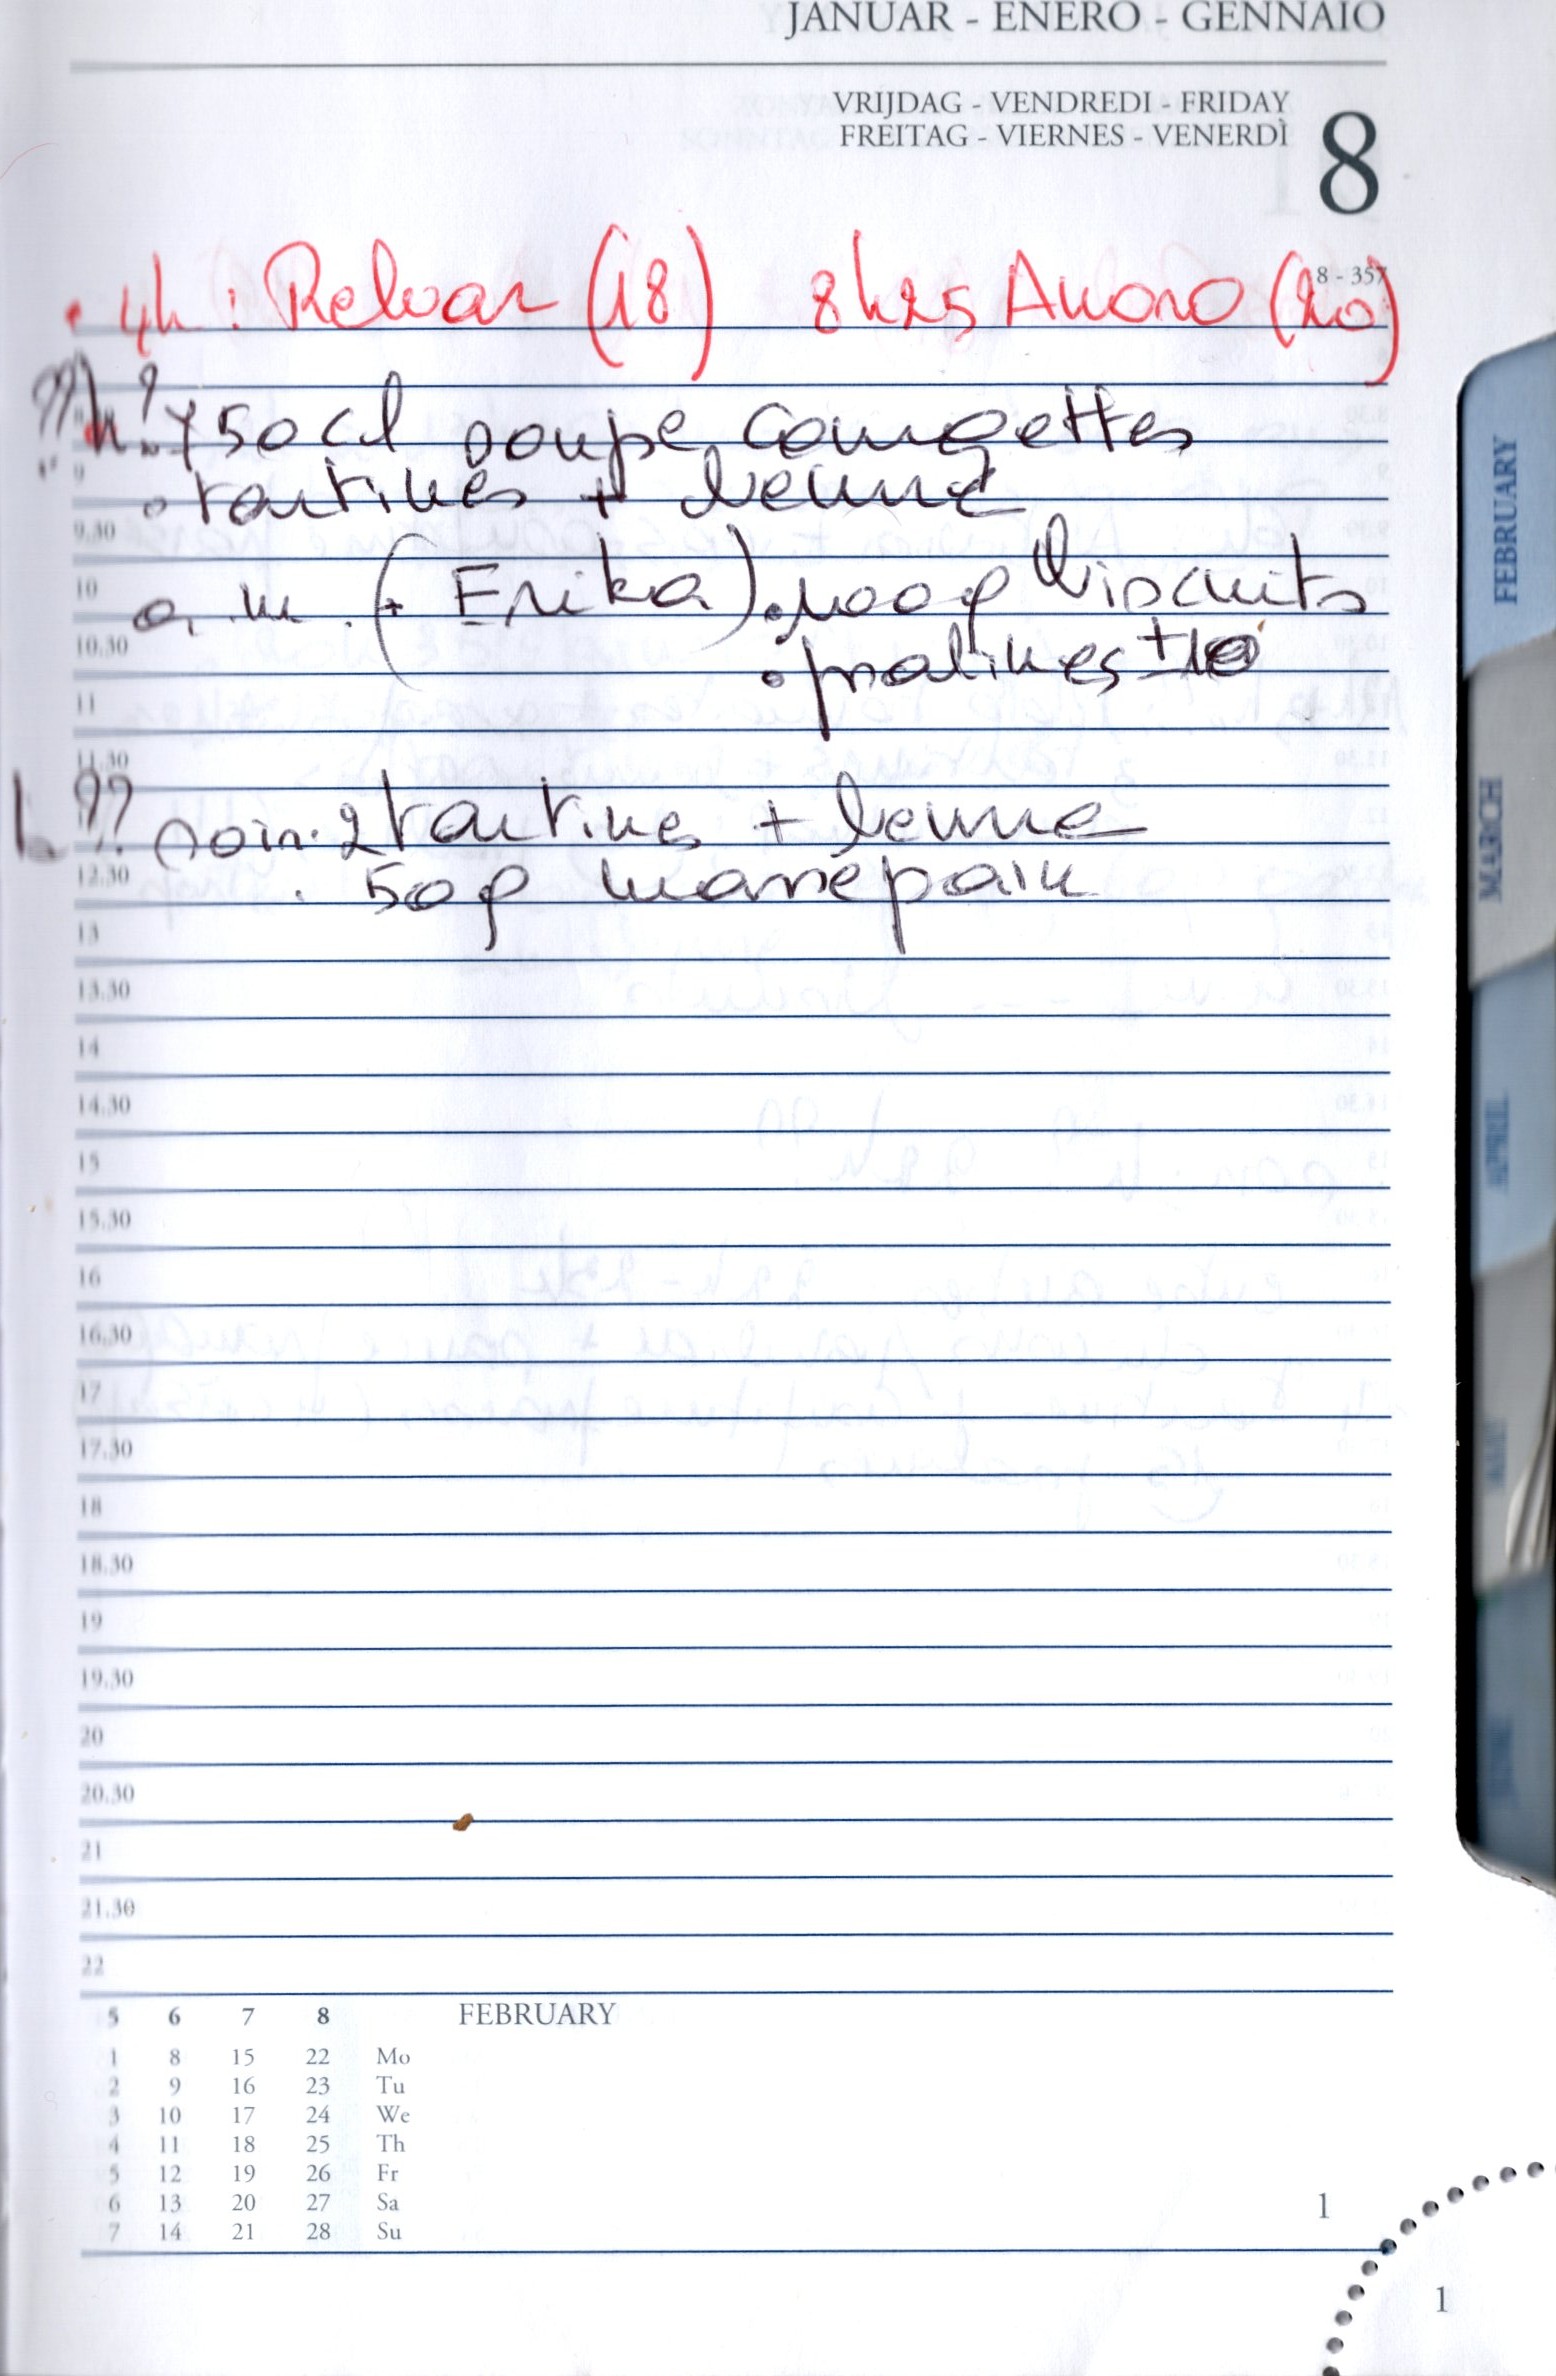 JANUAR - ENERO - GENNAIO
VRIJDAG - VENDREDI - FRIDAY
FREITAG - VIERNES - VENERDÌ
8
8 - 357
• 4h : Relvar (18) 8h25 (20)
??h? 50 cl soupe courgettes
9
• tartines + beurre
9.30
10
a. m. (+ Erika) • 100g biscuits
10.30
• pralines ±10
11
11.30
h ?? soir • 2 tartines + beurre
12.30
• 50g massepain
13
13.30
14
14.30
15
15.30
16
16.30
17
17.30
18
18.30
19
19.30
20
20.30
21
21.30
22
5 6 7 8 FEBRUARY
1 8 15 22 Mo
2 9 16 23 Tu
3 10 17 24 We
4 11 18 25 Th
5 12 19 26 Fr
6 13 20 27 Sa
7 14 21 28 Su
1
1
FEBRUARY
MARCH
APRIL